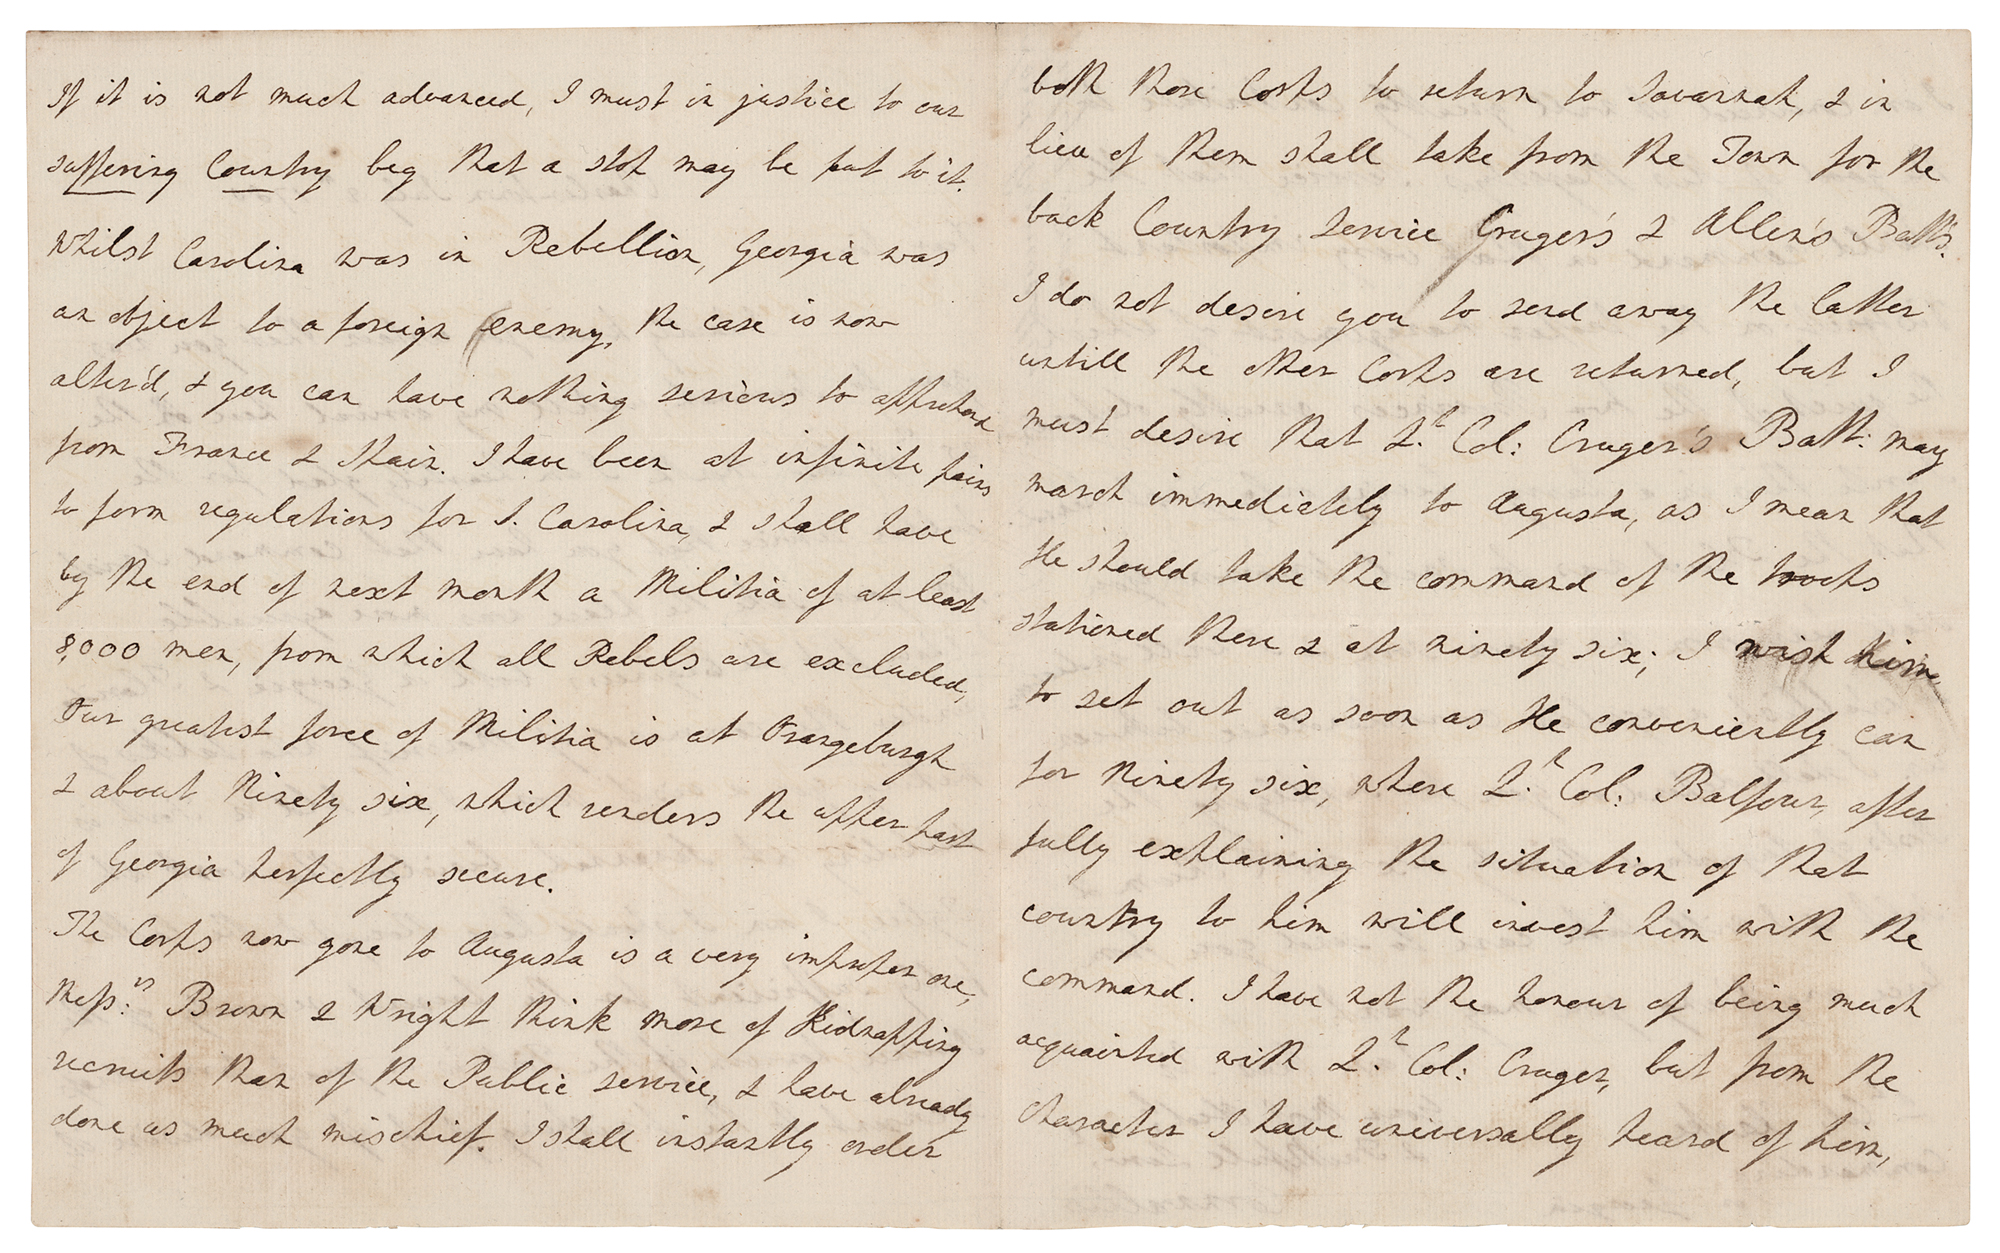 If it is not much advanced, I must in justice to our
suffering Country beg that a stop may be put to it.
Whilst Carolina was in Rebellion, Georgia was
an object to a foreign enemy, the case is now
alter'd, & you can have nothing serious to apprehend
from France & Spain. I have been at infinite pains
to form regulations for S. Carolina, & shall have
by the end of next month a Militia of at least
8,000 men, from which all Rebels are excluded,
Our greatest force of Militia is at Orangeburgh
& about Ninety six, which renders the upper part
of Georgia perfectly secure.
The Corps now gone to Augusta is a very improper one,
Mess:rs Brown & Wright think more of Kidnapping
recruits than of the Public service, & have already
done as much mischief. I shall instantly order
both those Corps to return to Savannah, & in
lieu of them shall take from the Town for the
back Country Service Cruger's & Allen's Batt's.
I do not desire you to send away the latter
untill the other Corps are returned, but I
must desire that Lt. Col: Cruger's Batt: may
march immediately to Augusta, as I mean that
He should take the command of the troops
stationed there & at ninety six; I wish him
to set out as soon as He conveniently can
for Ninety six, where Lt. Col: Balfour, after
fully explaining the situation of that
country to him will invest him with the
command. I have not the honour of being much
acquainted with Lt. Col: Cruger, but from the
character I have universally heard of him,